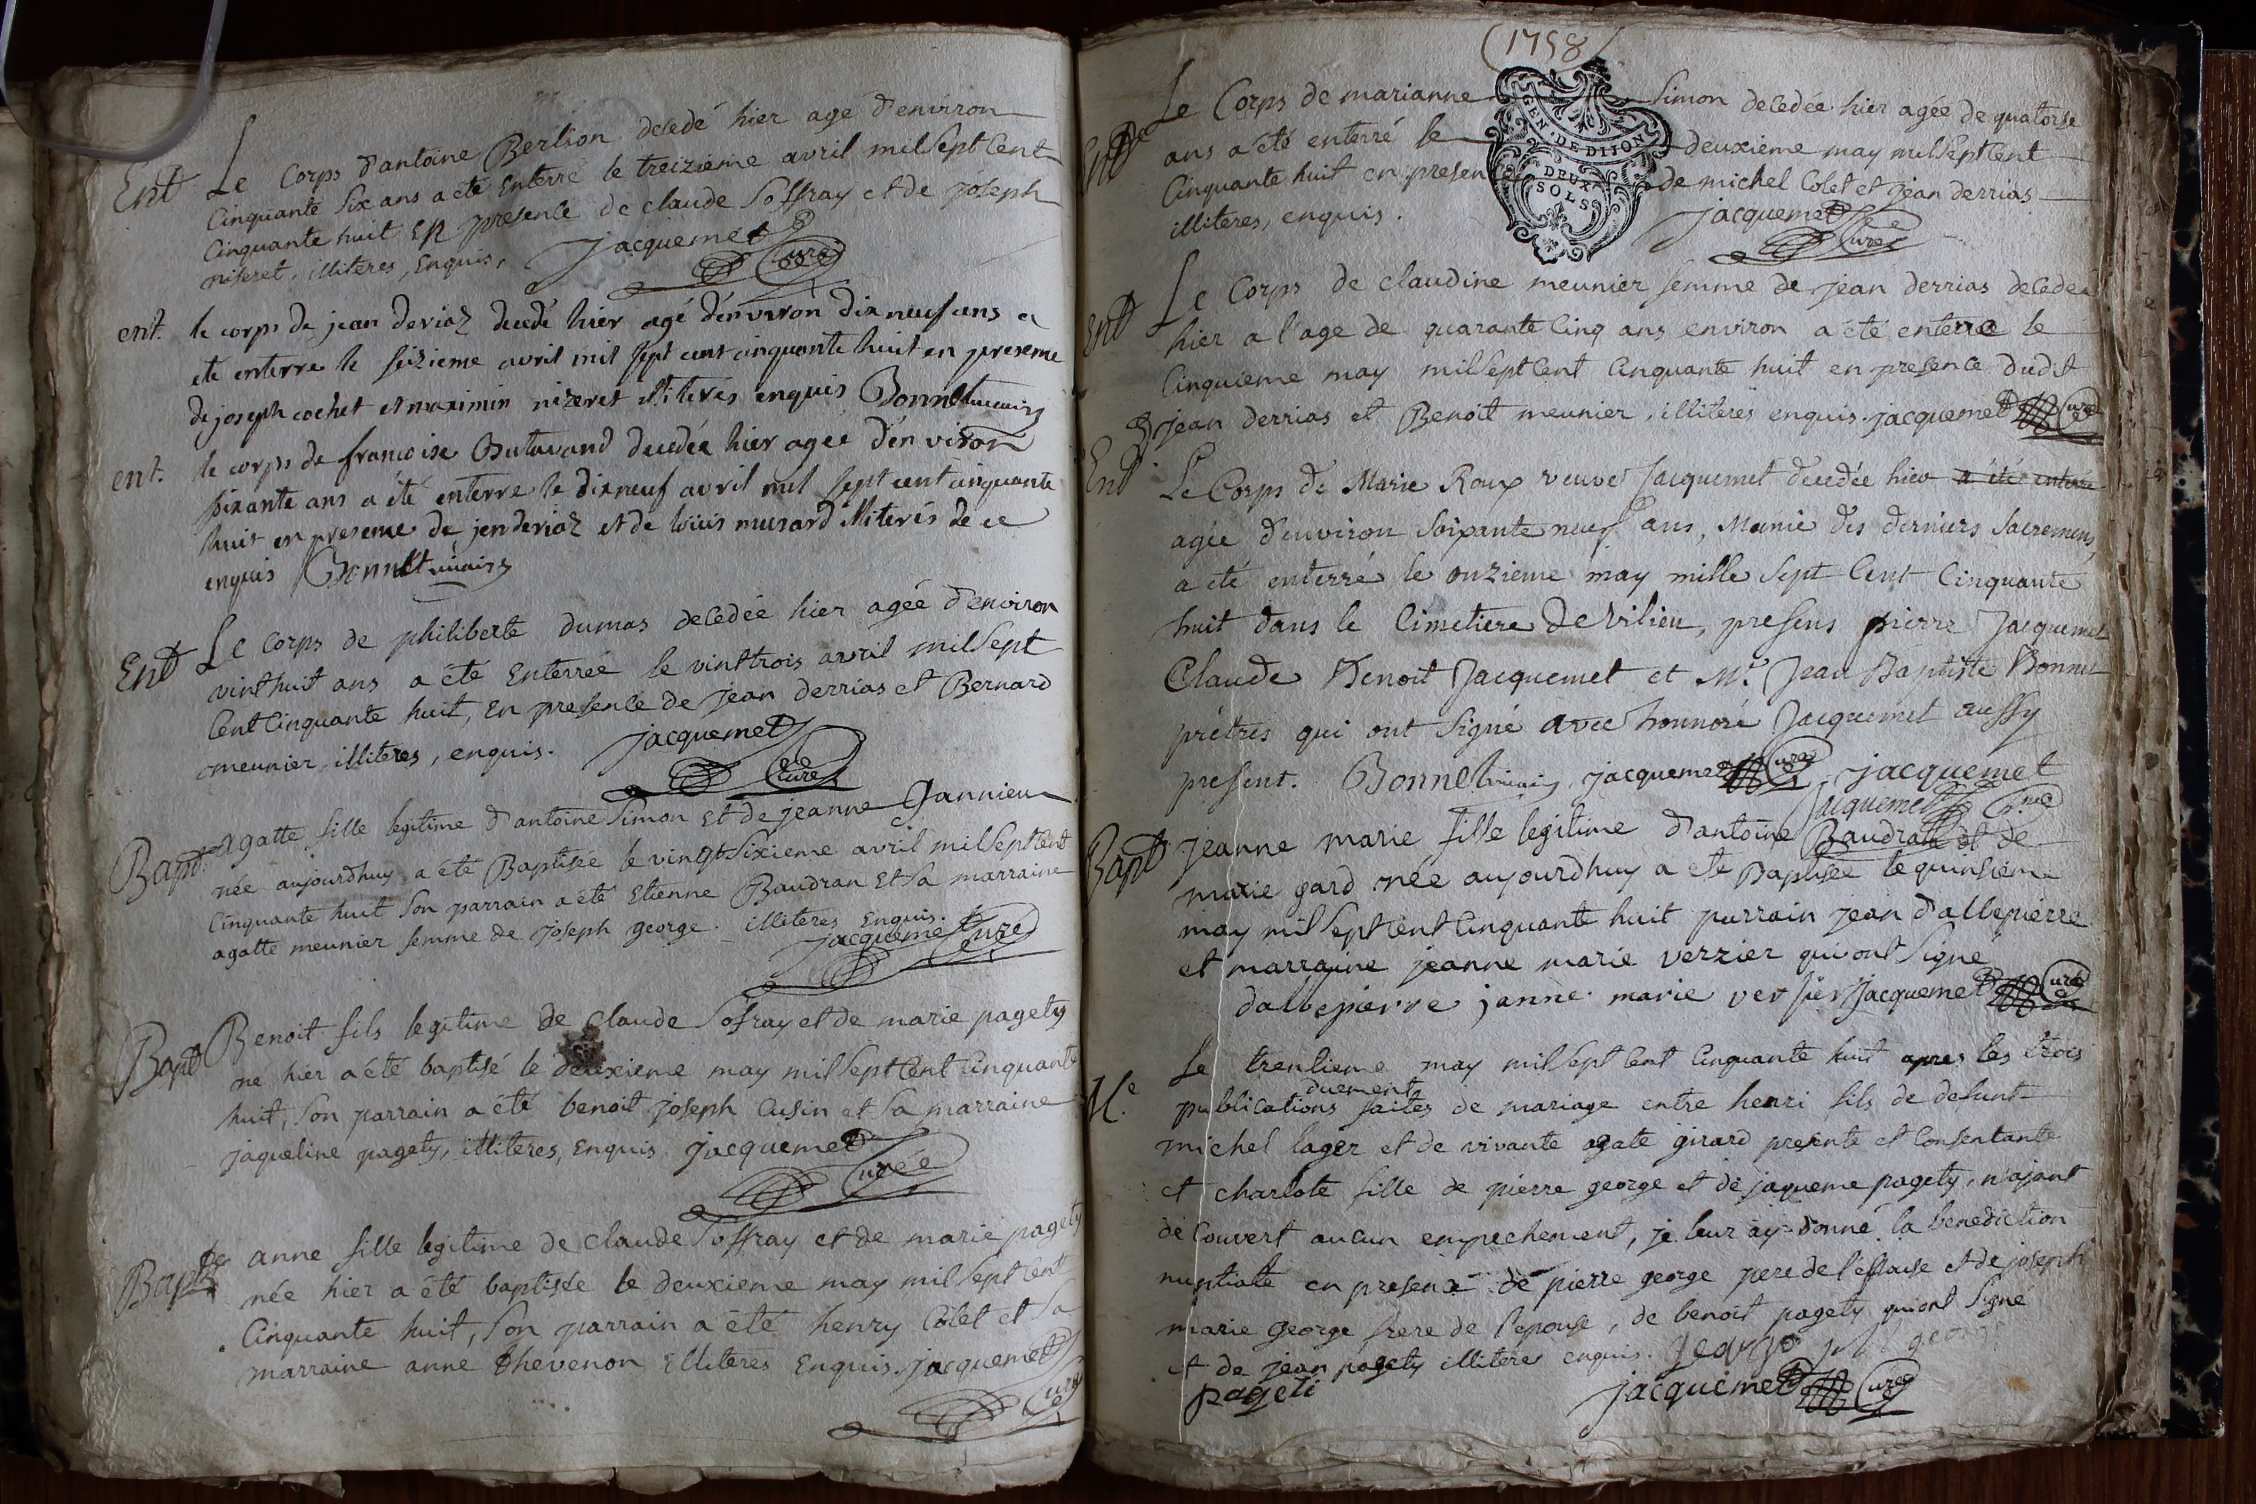 Ent Le Corps d'antoine Berlion decedé hier agé d'environ
Cinquante six ans a eté Enterré le treizieme avril mil sept Cent
Cinquante huit En presence de claude Soffray et de joseph
niseret, illiteres, Enquis, jacquemet Curé
ent. le corps de jean deriaz decedé hier agé d'environ dix neuf ans a
eté enterre le seizieme avril mil sept cent cinquante huit en presence
de joseph cochet et maximin nizeret illiterés enquis Bonnet vicaire
ent. le corps de francoise Butavand decedée hier agee d'environ
soixante ans a été enterre le dix neuf avril mil sept cent cinquante
huit en presence de jen deriaz et de loüis musard illiterés de ce
enquis Bonnet vicaire
Ent Le Corps de philiberte dumas decedée hier agée d'environ
vint huit ans a été Enterrée le vint trois avril mil sept
Cent Cinquante huit, En presence de jean derrias et Bernard
meunier illiteres, enquis. jacquemet Curé
Bapt. agatte fille legitime d'antoine Simon et de jeanne Gannieu
née aujourdhuy a été Baptisée le vingt sixieme avril mil sept Cent
Cinquante huit son parrain a été Etienne Baudran et sa marraine
agatte meunier femme de joseph george. illiteres Enquis.
jacquemet Curé
Bapt Benoit fils legitime de claude Sofray et de marie pagety
né hier a été baptisé le deuxieme may mil sept Cent Cinquante
huit, son parrain a été benoit joseph Cusin et sa marraine
jaqueline pagety, illiteres, enquis jacquemet
Curé
Bapt anne fille legitime de claude Soffray et de marie pagety
née hier a été baptisée le deuxieme may mil sept Cent
Cinquante huit, son parrain a été henry Colet et sa
marraine anne thevenon Illiteres Enquis. jacquemet
Curé
(1758)
GEN. DE DIJON
DEUX
SOLS
Ent Le Corps de marianne Simon decedée hier agée de quatorse
ans a eté enterré le deuxieme may mil sept Cent
Cinquante huit en presence de michel Colet et jean derrias
illiteres, enquis. jacquemet
Curé
Ent Le Corps de claudine meunier femme de jean derrias decedée
hier a l'age de quarante Cinq ans environ a été enterré le
Cinquieme may mil sept Cent Cinquante huit en presence dudit
jean derrias et Benoit meunier, illiteres enquis. jacquemet Curé
Ent Le Corps de Marie Roux veuve Jacquemet decedée hier a été enterré
agée d'environ soixante neuf ans, Munie des derniers Sacremens,
a eté enterré le onzieme may mille sept Cent Cinquante
huit dans le Cimetiere de vilieu, presens pierre Jacquemet
Claude Benoit Jacquemet et Mr. Jean Baptiste Bonnet
prêtres qui ont signé avec honnoré Jacquemet aussy
present. Bonnet vicaire jacquemet Curé jacquemet
Jacquemet
Bapt jeanne marie fille legitime d'antoine Baudran et de
marie gard née aujourdhuy a eté Baptisée le quinsieme
may mil sept Cent Cinquante huit parrain jean d'allepierre
et marraine jeanne marie verzier qui ont signé
dallepierre janne marie versier jacquemet Curé
M.e Le trentieme may mil sept Cent Cinquante huit apres les trois
publications duement faites de mariage entre henri fils de defunt
michel lager et de vivante agate girard presente et Consentante
et charlote fille de pierre george et de jaqueme pagety, n'ajant
decouvert aucun empechement, je leur ay donné la benediction
nuptiale en presence de pierre george pere de l'epouse et de joseph
marie george frere de l'epouse, de benoit pagety qui ont signé
et de jean pagety illiteres enquis. george george
pageti jacquemet Curé